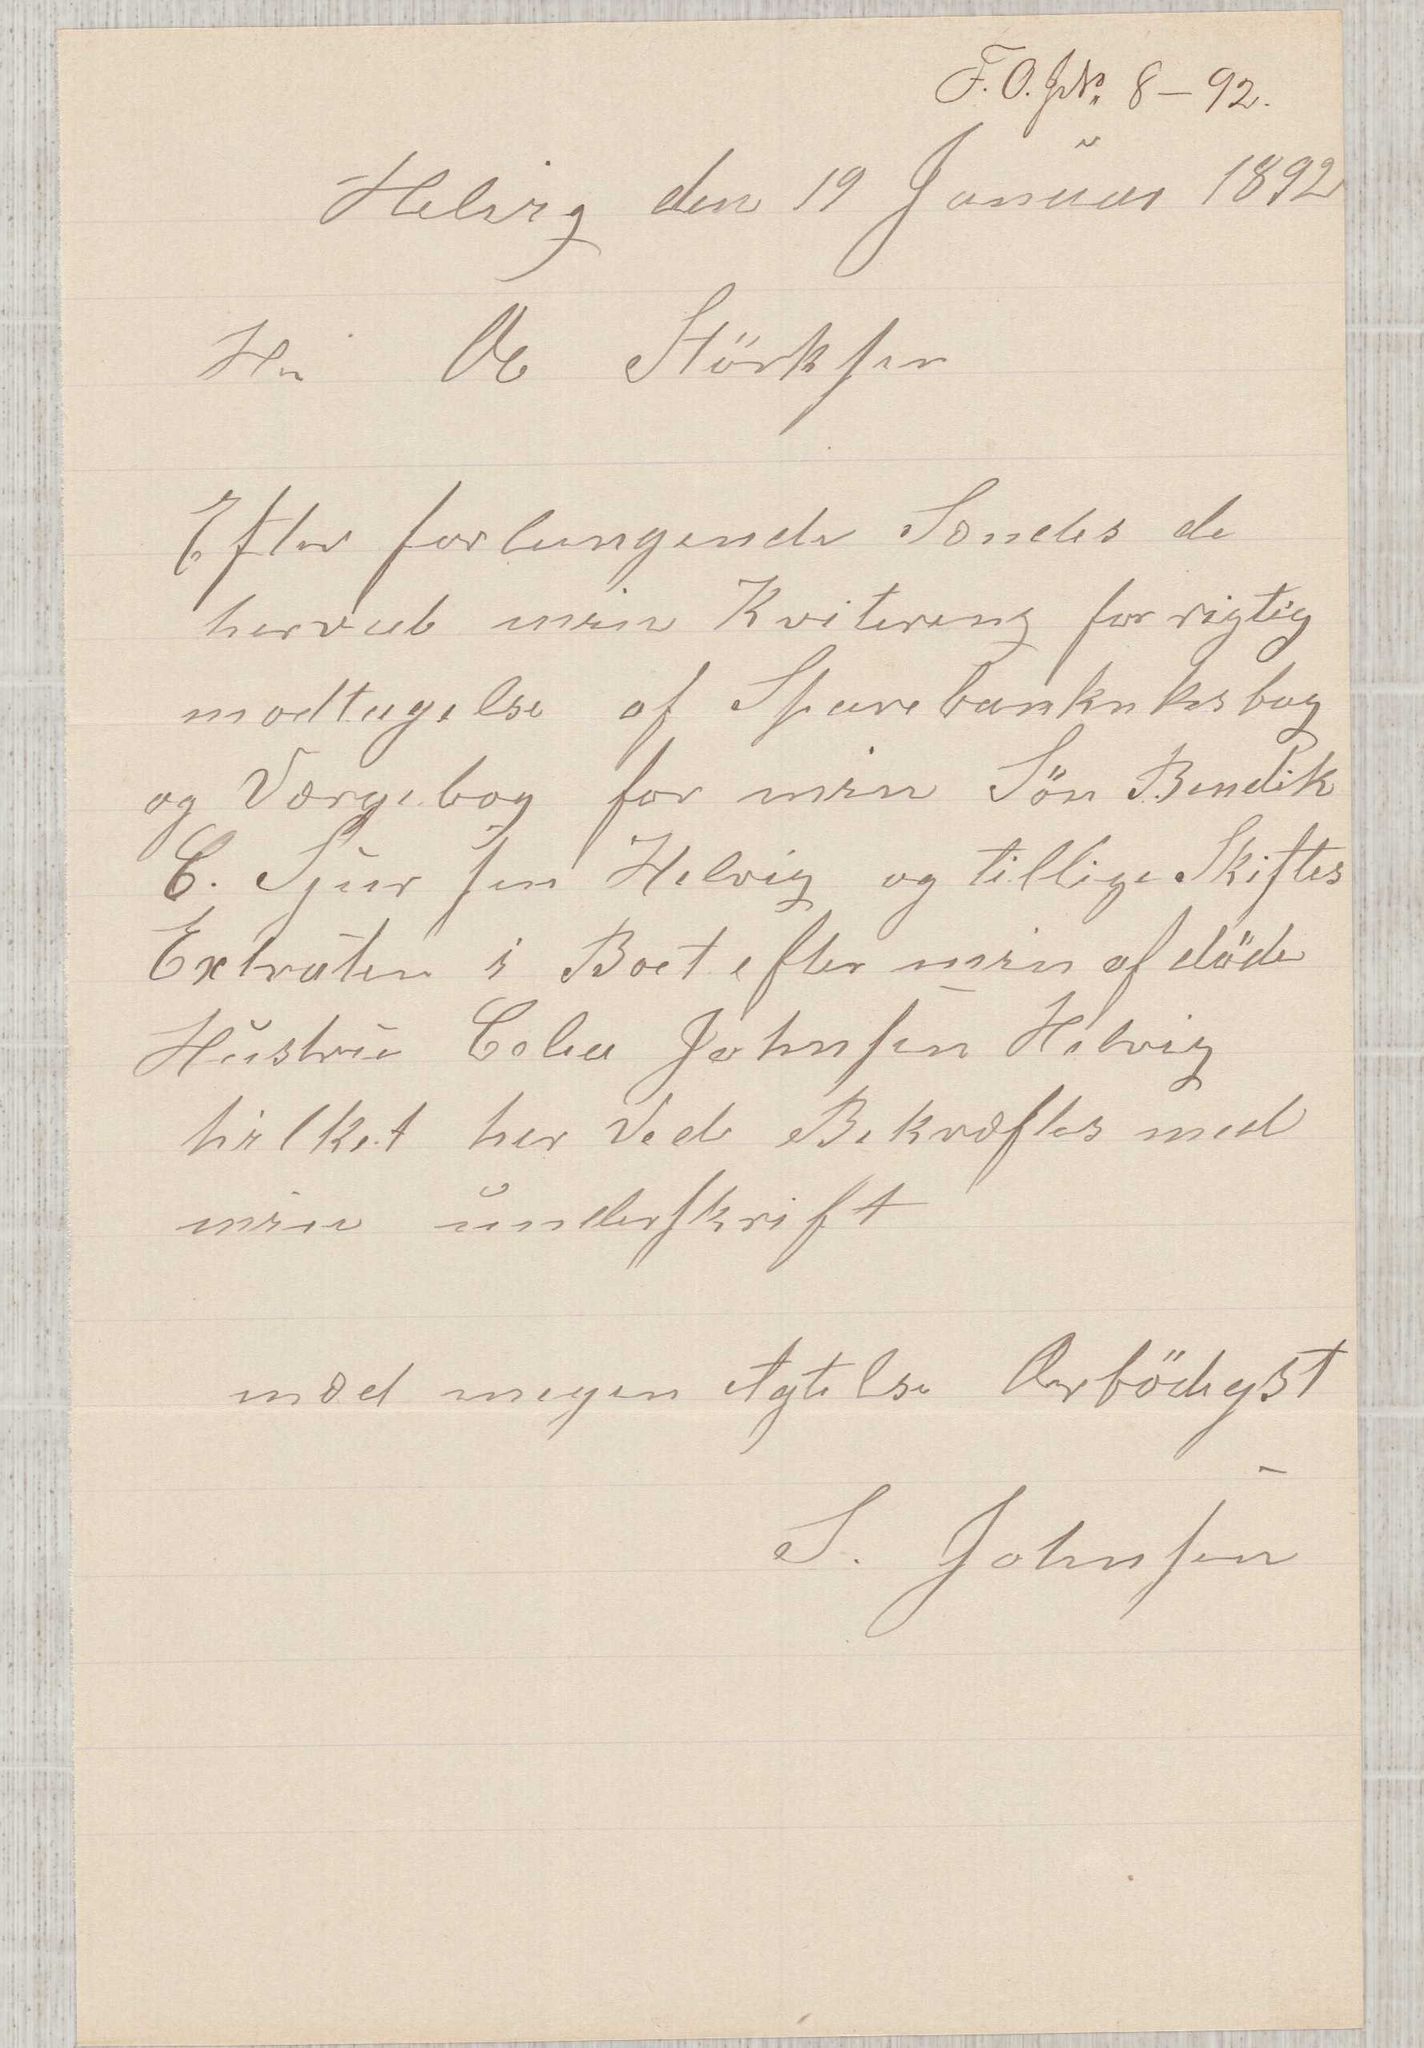 F. O. J№. 8 – 92.
Helvig den 19 Januar 1892
Hr. O Störksen
Efter forlangende Sendes de
herved min Kvitering for rigtig
modtagelse af Sparebanknksbog
og Værgebog for min Sön Bendik
C. Sjursen Helvig og tillige Skiftes
Extraten i Boet efter min afdöde
Hustru Johnsen Helvig
hvilket her Ved Bekræftes med
min underskrift
med megen Agtelse Ærbödigst
S. Johnsen